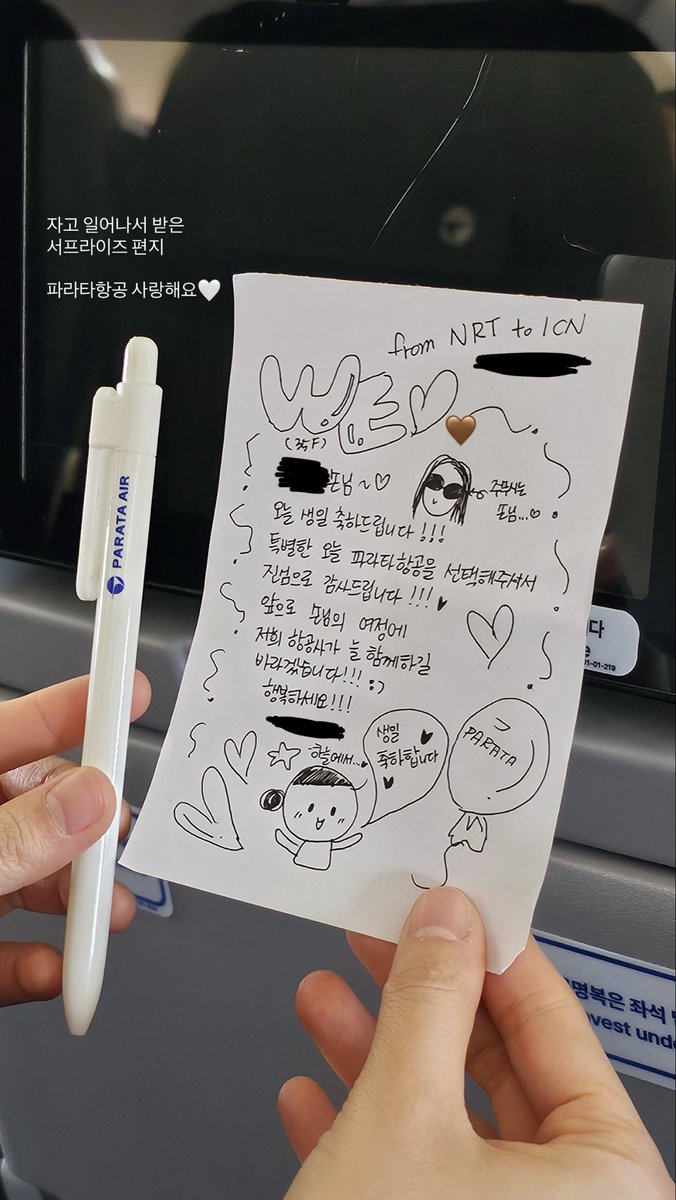 자고 일어나서 받은
서프라이즈 편지
파라타항공 사랑해요🤍
PARATA AIR
from NRT to ICN
W.E
손님~♡
주무시는
손님...♡
오늘 생일 축하드립니다!!!
특별한 오늘 파라타항공을 선택해주셔서
진심으로 감사드립니다!!!♥
앞으로 손님의 여정에
저희 항공사가 늘 함께하길
바라겠습니다!!! :)
행복하세요!!!
하늘에서..♥
생일
축하합니다
PARATA
다
e
01-219
명복은 좌석
vest unde